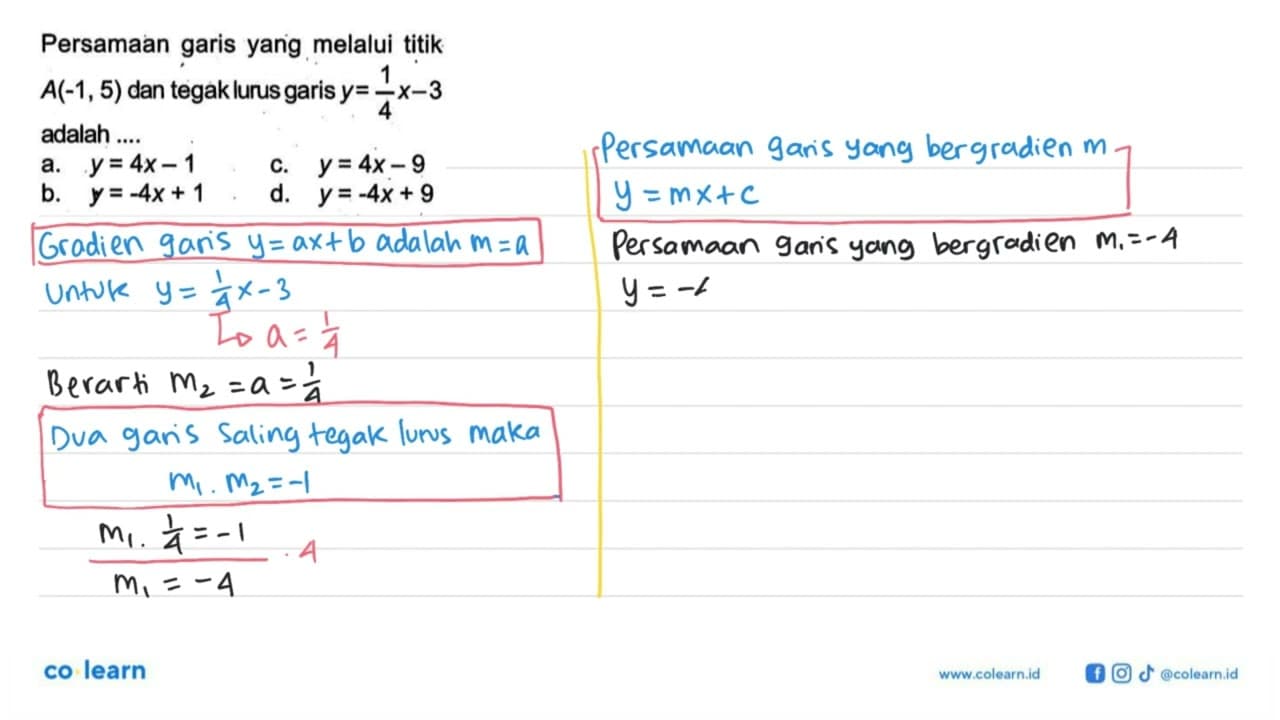 Persamaan garis yang melalui titik
A(-1, 5) dan tegak lurus garis y = 1/4 x - 3
adalah ....
a. y = 4x - 1 c. y = 4x - 9
b. y = -4x + 1 d. y = -4x + 9
Gradien garis y = ax + b adalah m = a
Untuk y = 1/4 x - 3
↳ a = 1/4
Berarti m₂ = a = 1/4
Dua garis saling tegak lurus maka
m₁ . m₂ = -1
m₁ . 1/4 = -1
. 4
m₁ = -4
Persamaan garis yang bergradien m
y = mx + c
Persamaan garis yang bergradien m₁ = -4
y = -
co learn
www.colearn.id
@colearn.id